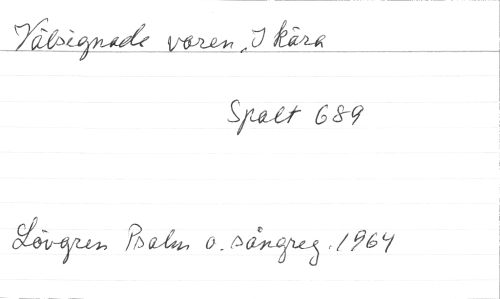 Välsignade varen, I kära
Spalt 689
Lövgren Psalm o. sångreg. 1964